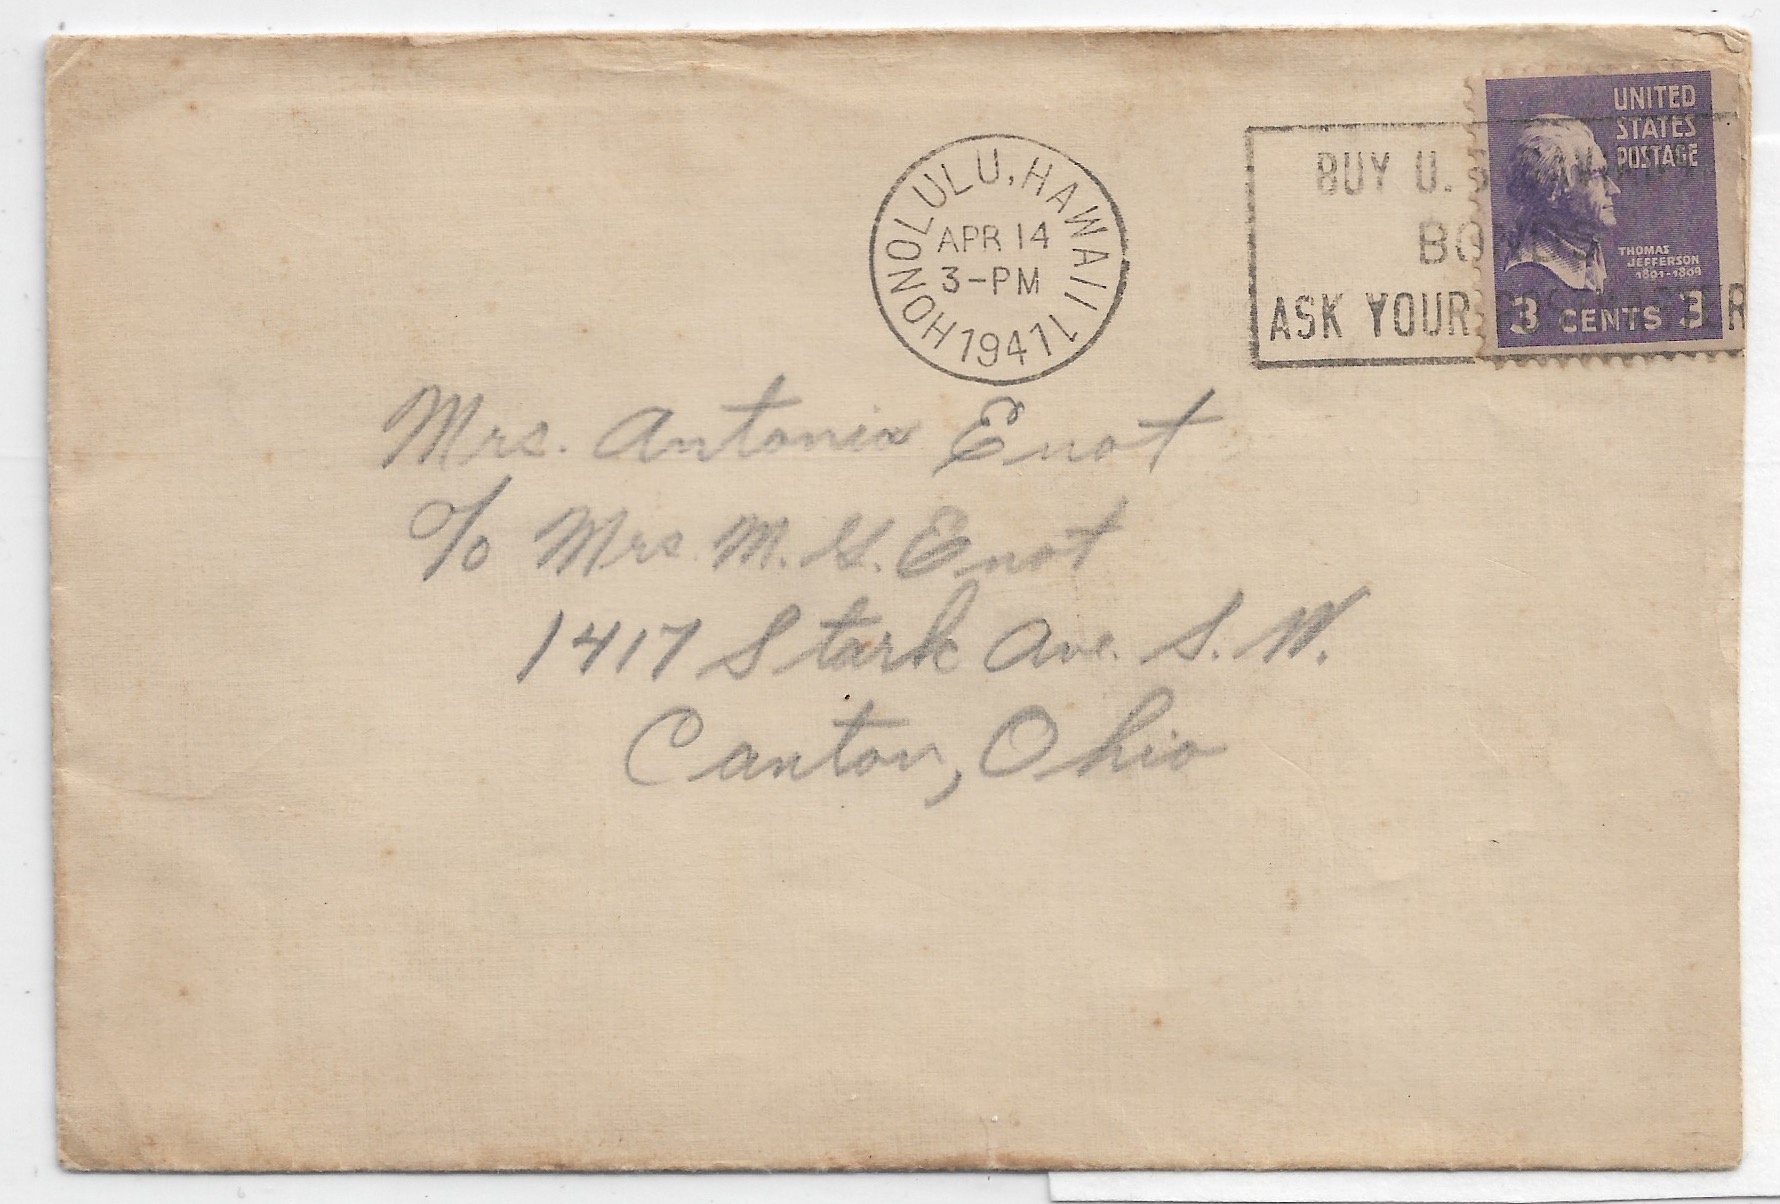 HONOLULU, HAWAII
APR 14
3-PM
1941 1
BUY U. S.
BONDS
ASK YOUR
UNITED
STATES
POSTAGE
THOMAS
JEFFERSON
1801-1809
3 CENTS 3
Mrs. Antonia Enot
c/o Mrs M. G. Enot
1417 Stark Ave. S. W.
Canton, Ohio